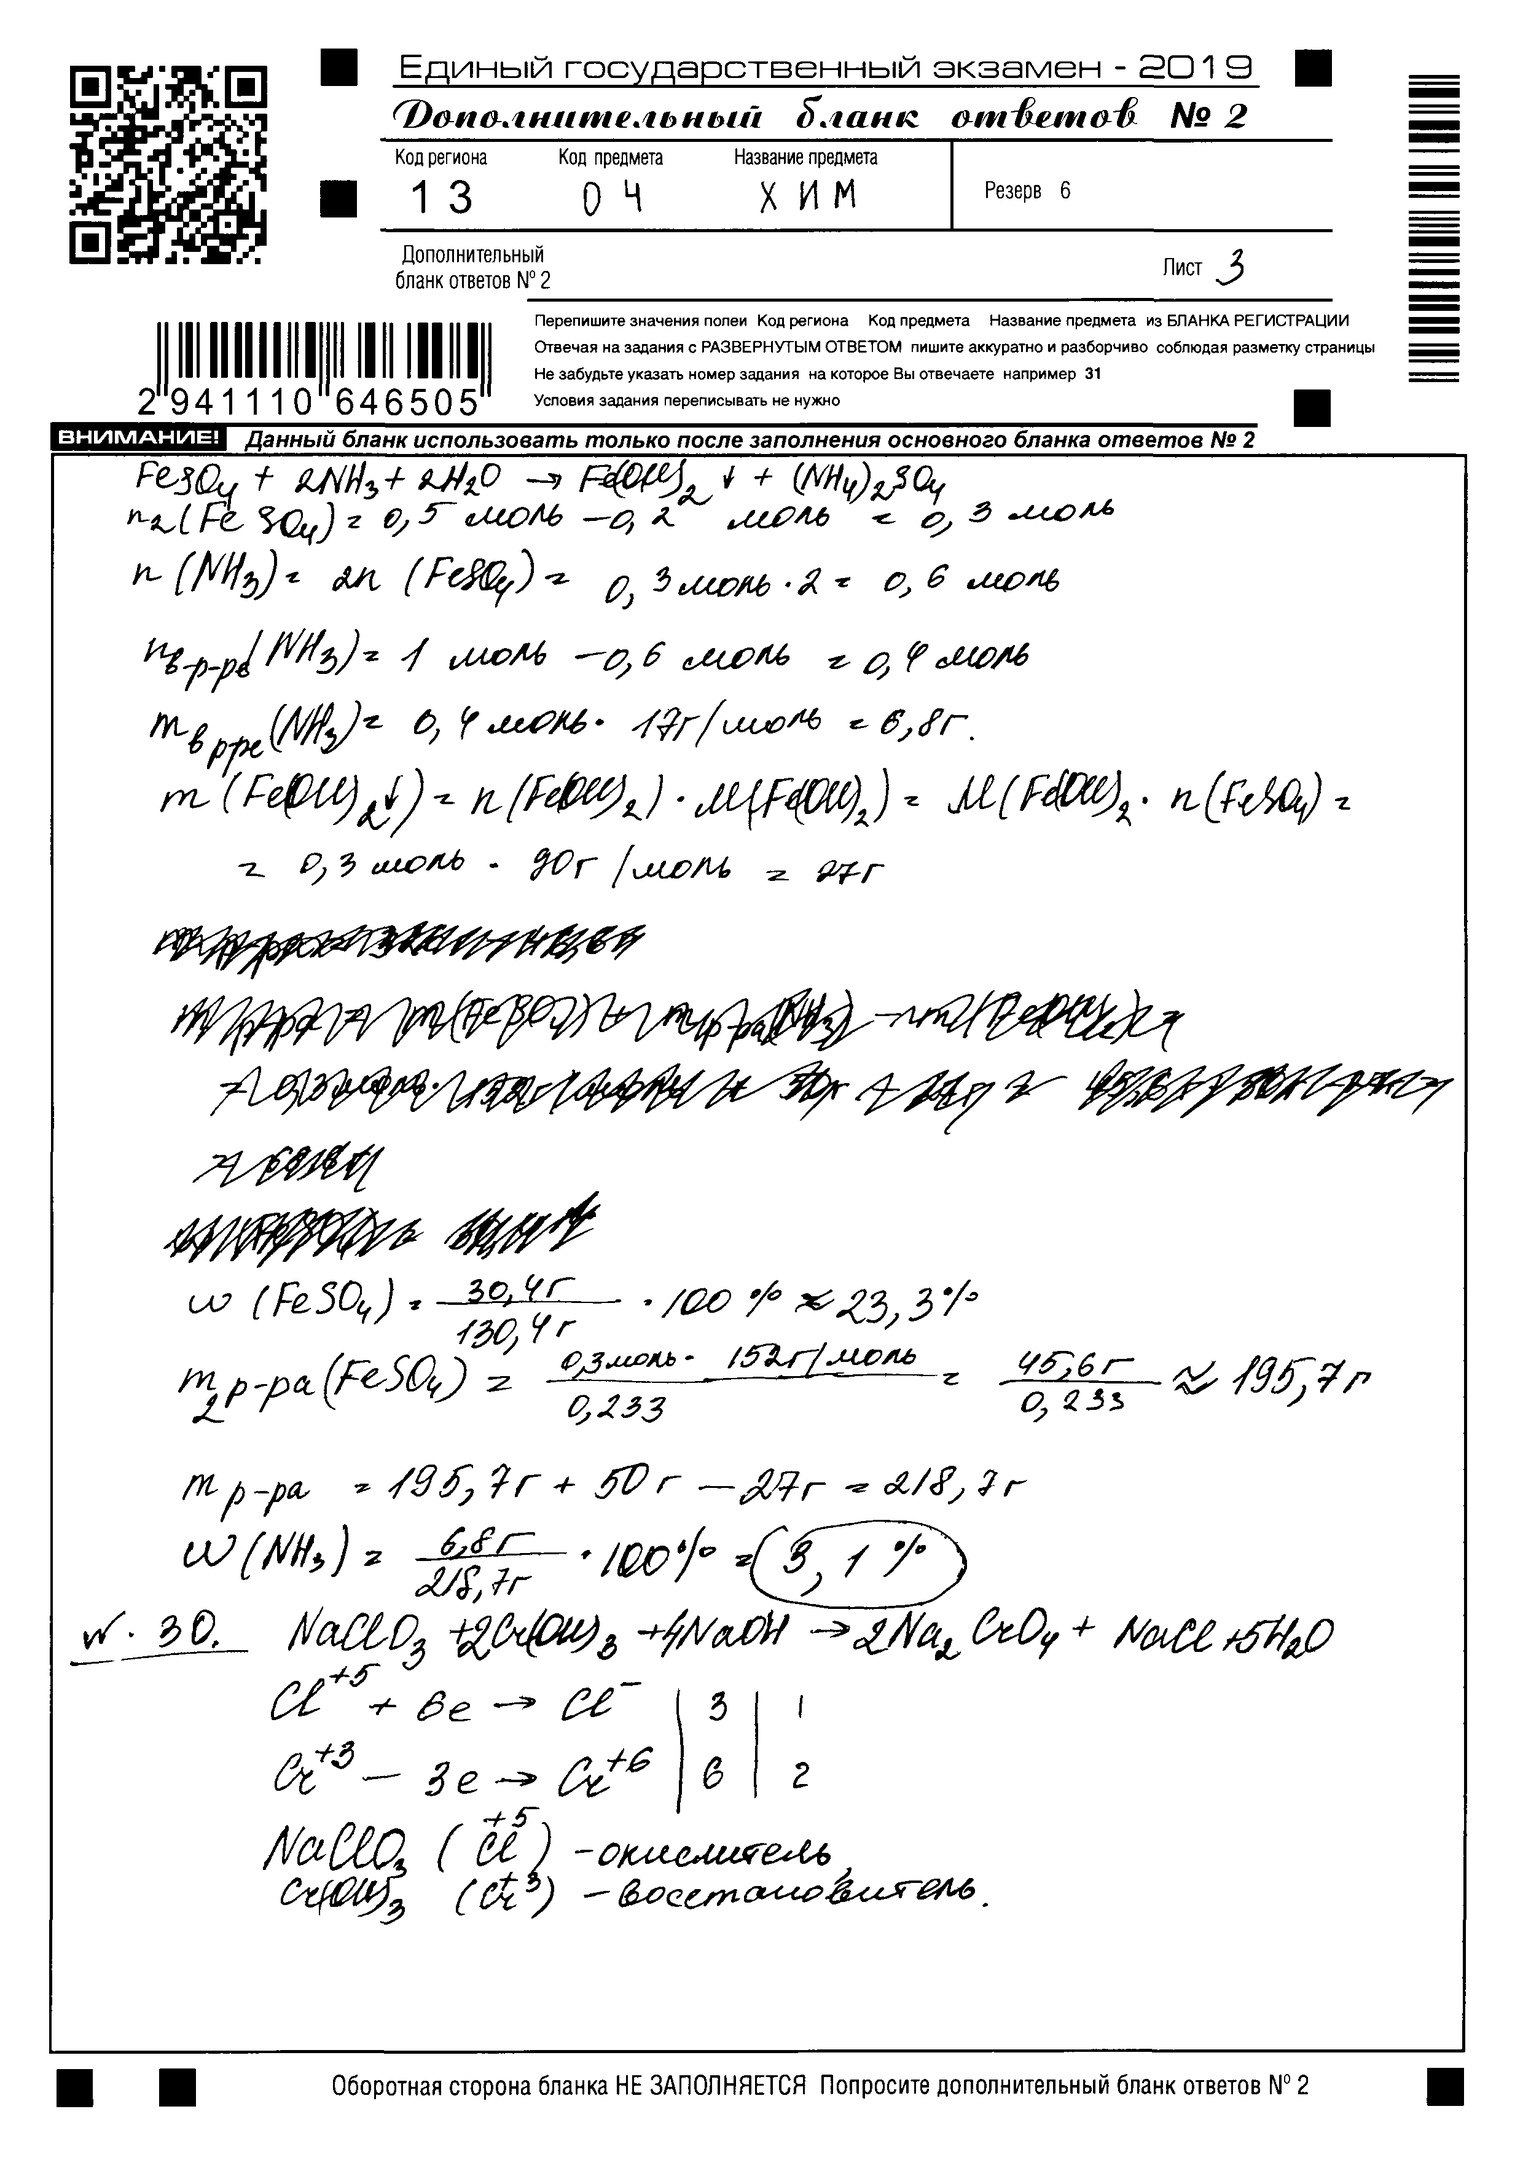 Единый государственный экзамен - 2019
Дополнительный бланк ответов № 2
Код региона Код предмета Название предмета
13 04 ХИМ
Резерв 6
Дополнительный
бланк ответов № 2
Лист 3
Перепишите значения полеи Код региона Код предмета Название предмета из БЛАНКА РЕГИСТРАЦИИ
Отвечая на задания с РАЗВЕРНУТЫМ ОТВЕТОМ пишите аккуратно и разборчиво соблюдая разметку страницы
Не забудьте указать номер задания на которое Вы отвечаете например 31
Условия задания переписывать не нужно
2 941110 646505
ВНИМАНИЕ! Данный бланк использовать только после заполнения основного бланка ответов № 2
FeSO4 + 2NH3 + 2H2O → Fe(OH)2↓ + (NH4)2SO4
n2(FeSO4) = 0,5 моль - 0,2 моль = 0,3 моль
n(NH3) = 2n(FeSO4) = 0,3 моль · 2 = 0,6 моль
nв р-ре(NH3) = 1 моль - 0,6 моль = 0,4 моль
mв р-ре(NH3) = 0,4 моль · 17г/моль = 6,8г.
m(Fe(OH)2↓) = n(Fe(OH)2) · M(Fe(OH)2) = M(Fe(OH)2 · n(FeSO4) =
= 0,3 моль · 90г/моль = 27г
w(FeSO4) = 30,4г / 130,4г · 100% ≈ 23,3%
m2 р-ра(FeSO4) = 0,3моль · 152г/моль / 0,233 = 45,6г / 0,233 ≈ 195,7г
m р-ра = 195,7г + 50г - 27г = 218,7г
w(NH3) = 6,8г / 218,7г · 100% = 3,1%
N. 30. NaClO3 + 2Cr(OH)3 + 4NaOH → 2Na2CrO4 + NaCl + 5H2O
Cl+5 + 6e → Cl- | 3 | 1
Cr+3 - 3e → Cr+6 | 6 | 2
NaClO3 (Cl+5) - окислитель,
Cr(OH)3 (Cr+3) - восстановитель.
Оборотная сторона бланка НЕ ЗАПОЛНЯЕТСЯ Попросите дополнительный бланк ответов № 2